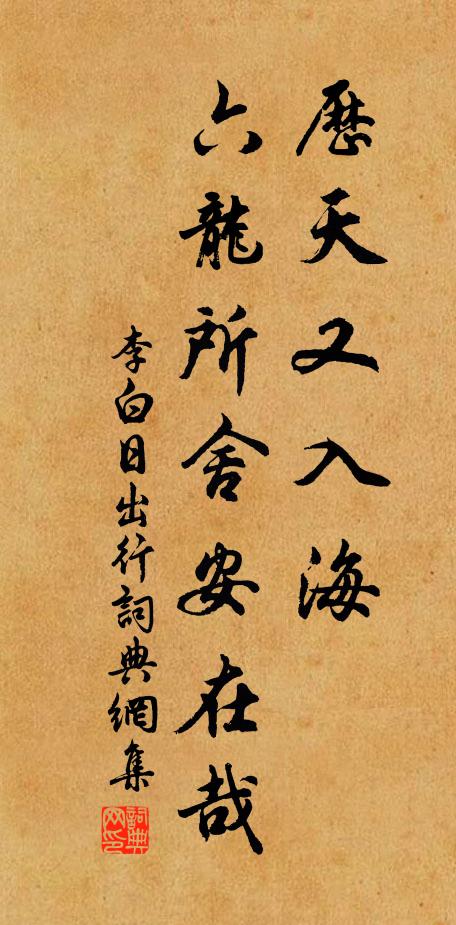 歷天又入海
六龍所舍安在哉
李白日出行詞典網集
詞典網印